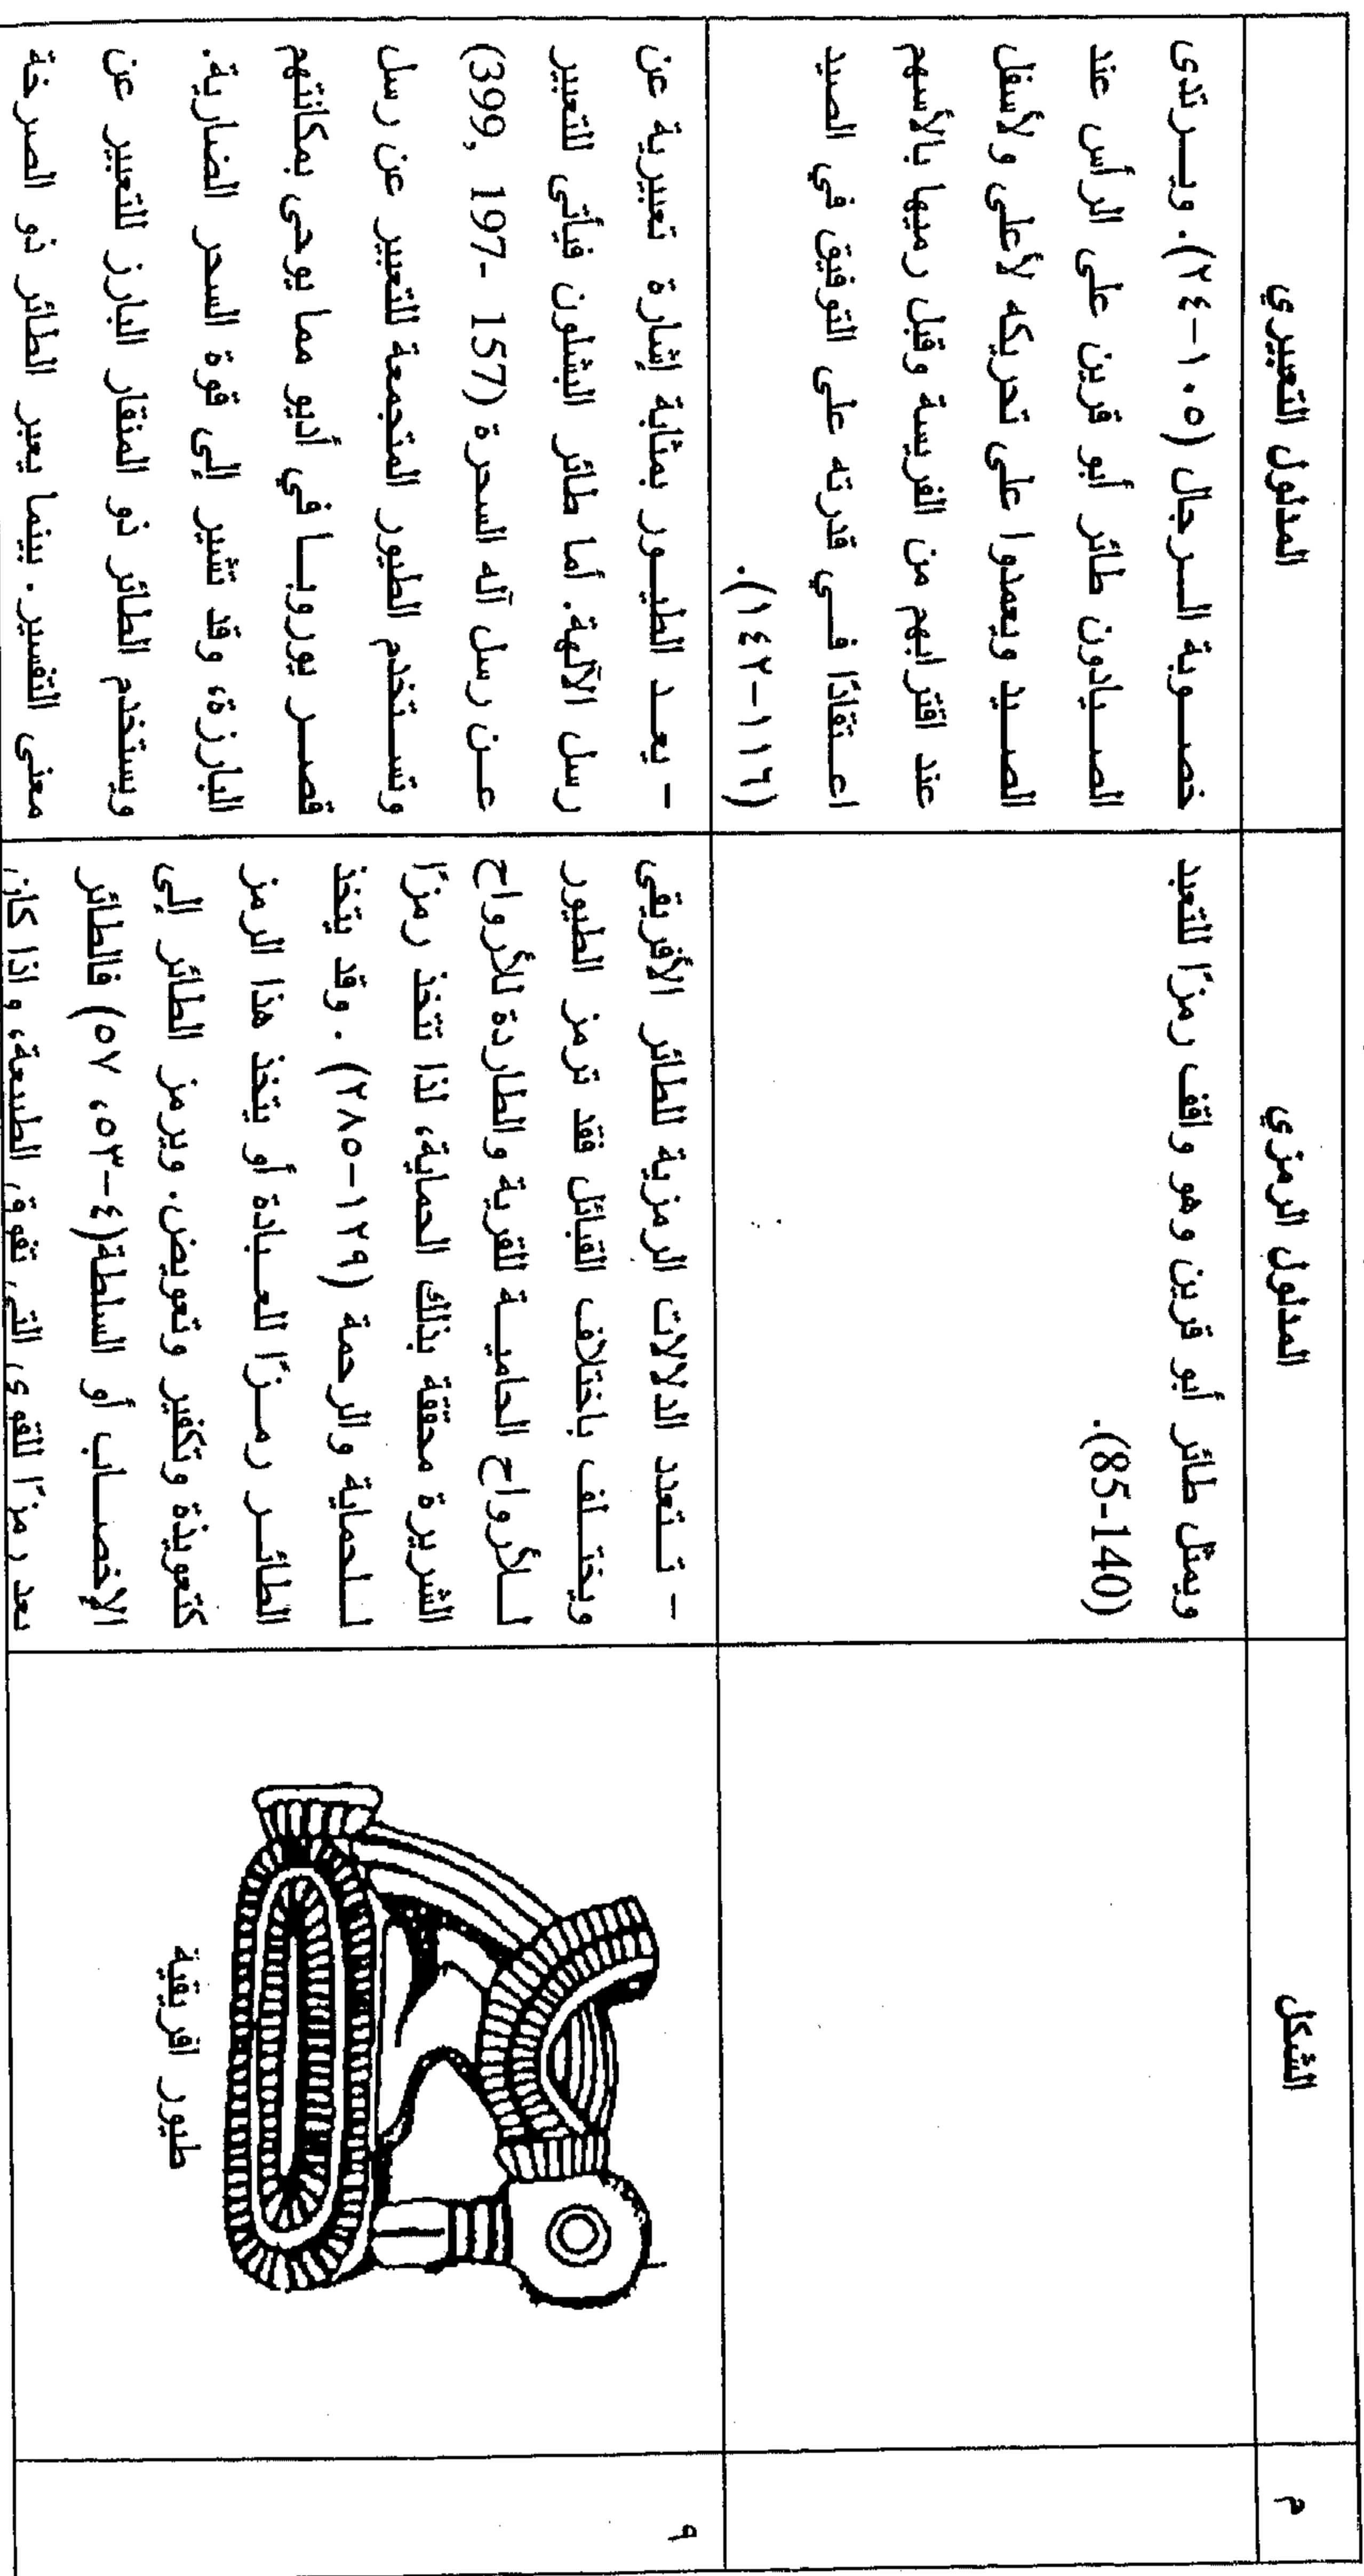 م
الشكل
المدلول الرمزي
المدلول التعبيري
ويمثل طائر أبو قرين وهو واقف رمزًا للتعبد
(85-140).
خصوبة الرجال (١٠٥-٢٤). ويرتدى
الصيادون طائر أبو قرين على الرأس عند
الصيد ويعمدوا على تحريكه لأعلى ولأسفل
عند اقترابهم من الفريسة وقبل رميها بالأسهم
اعتقادًا في قدرته على التوفيق في الصيد
(١١٦-١٤٢).
٩
طيور افريقية
- تتعدد الدلالات الرمزية للطائر الأفريقى
ويختلف باختلاف القبائل فقد ترمز الطيور
للأرواح الحامية للقرية والطاردة للأرواح
الشريرة محققة بذلك الحماية، لذا تتخذ رمزًا
للحماية والرحمة (١٢٩-٢٨٥). وقد يتخذ
الطائر رمزًا للعبادة أو يتخذ هذا الرمز
كتعويذة وتكفير وتعويض. ويرمز الطائر إلى
الإخصاب أو السلطة(٤-٥٣، ٥٧) فالطائر
يعد رمزًا للقوى التى تفوق الطبيعة، وإذا كان
- يعد الطيور بمثابة إشارة تعبيرية عن
رسل الآلهة. أما طائر البشلون فيأتى للتعبير
عن رسل آله السحرة (157 -197 ,399)
وتستخدم الطيور المتجمعة للتعبير عن رسل
قصر يوروبا في أديو مما يوحى بمكانتهم
البارزة، وقد تشير إلى قوة السحر الضارية.
ويستخدم الطائر ذو المنقار البارز للتعبير عن
معنى التفسير. بينما يعبر الطائر ذو الصرخة